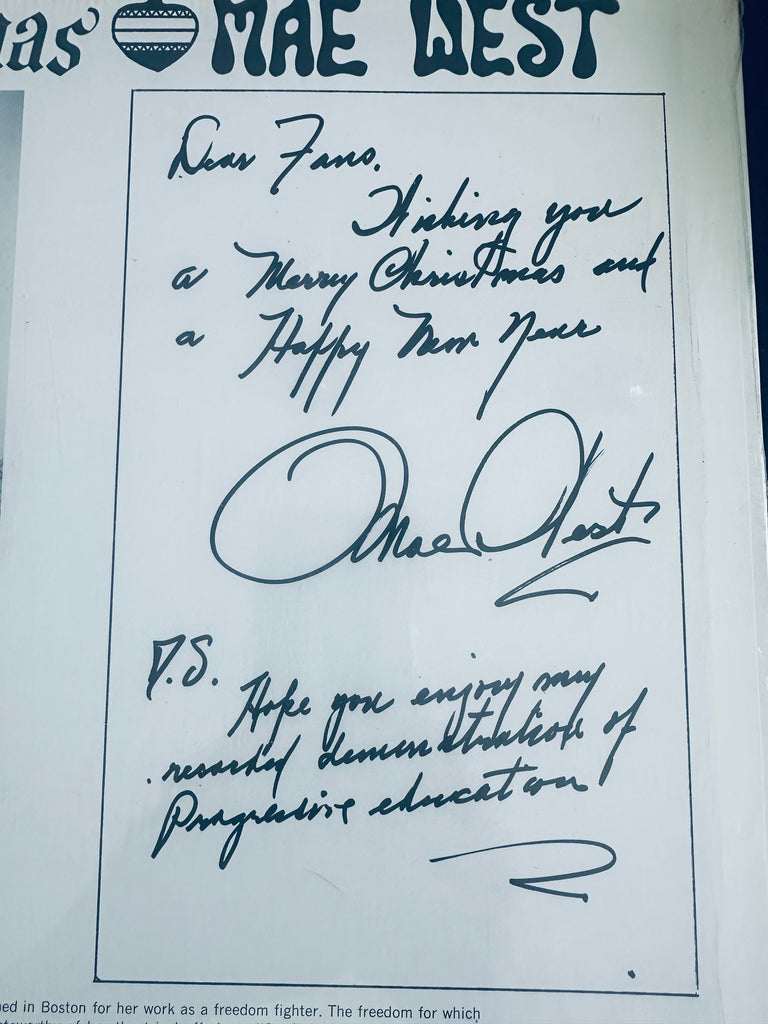 mas MAE WEST
Dear Fans,
Wishing you
a Merry Christmas and
a Happy New Year
Mae West
P.S.
Hope you enjoy my
recorded demonstration of
Progressive education
ned in Boston for her work as a freedom fighter. The freedom for which